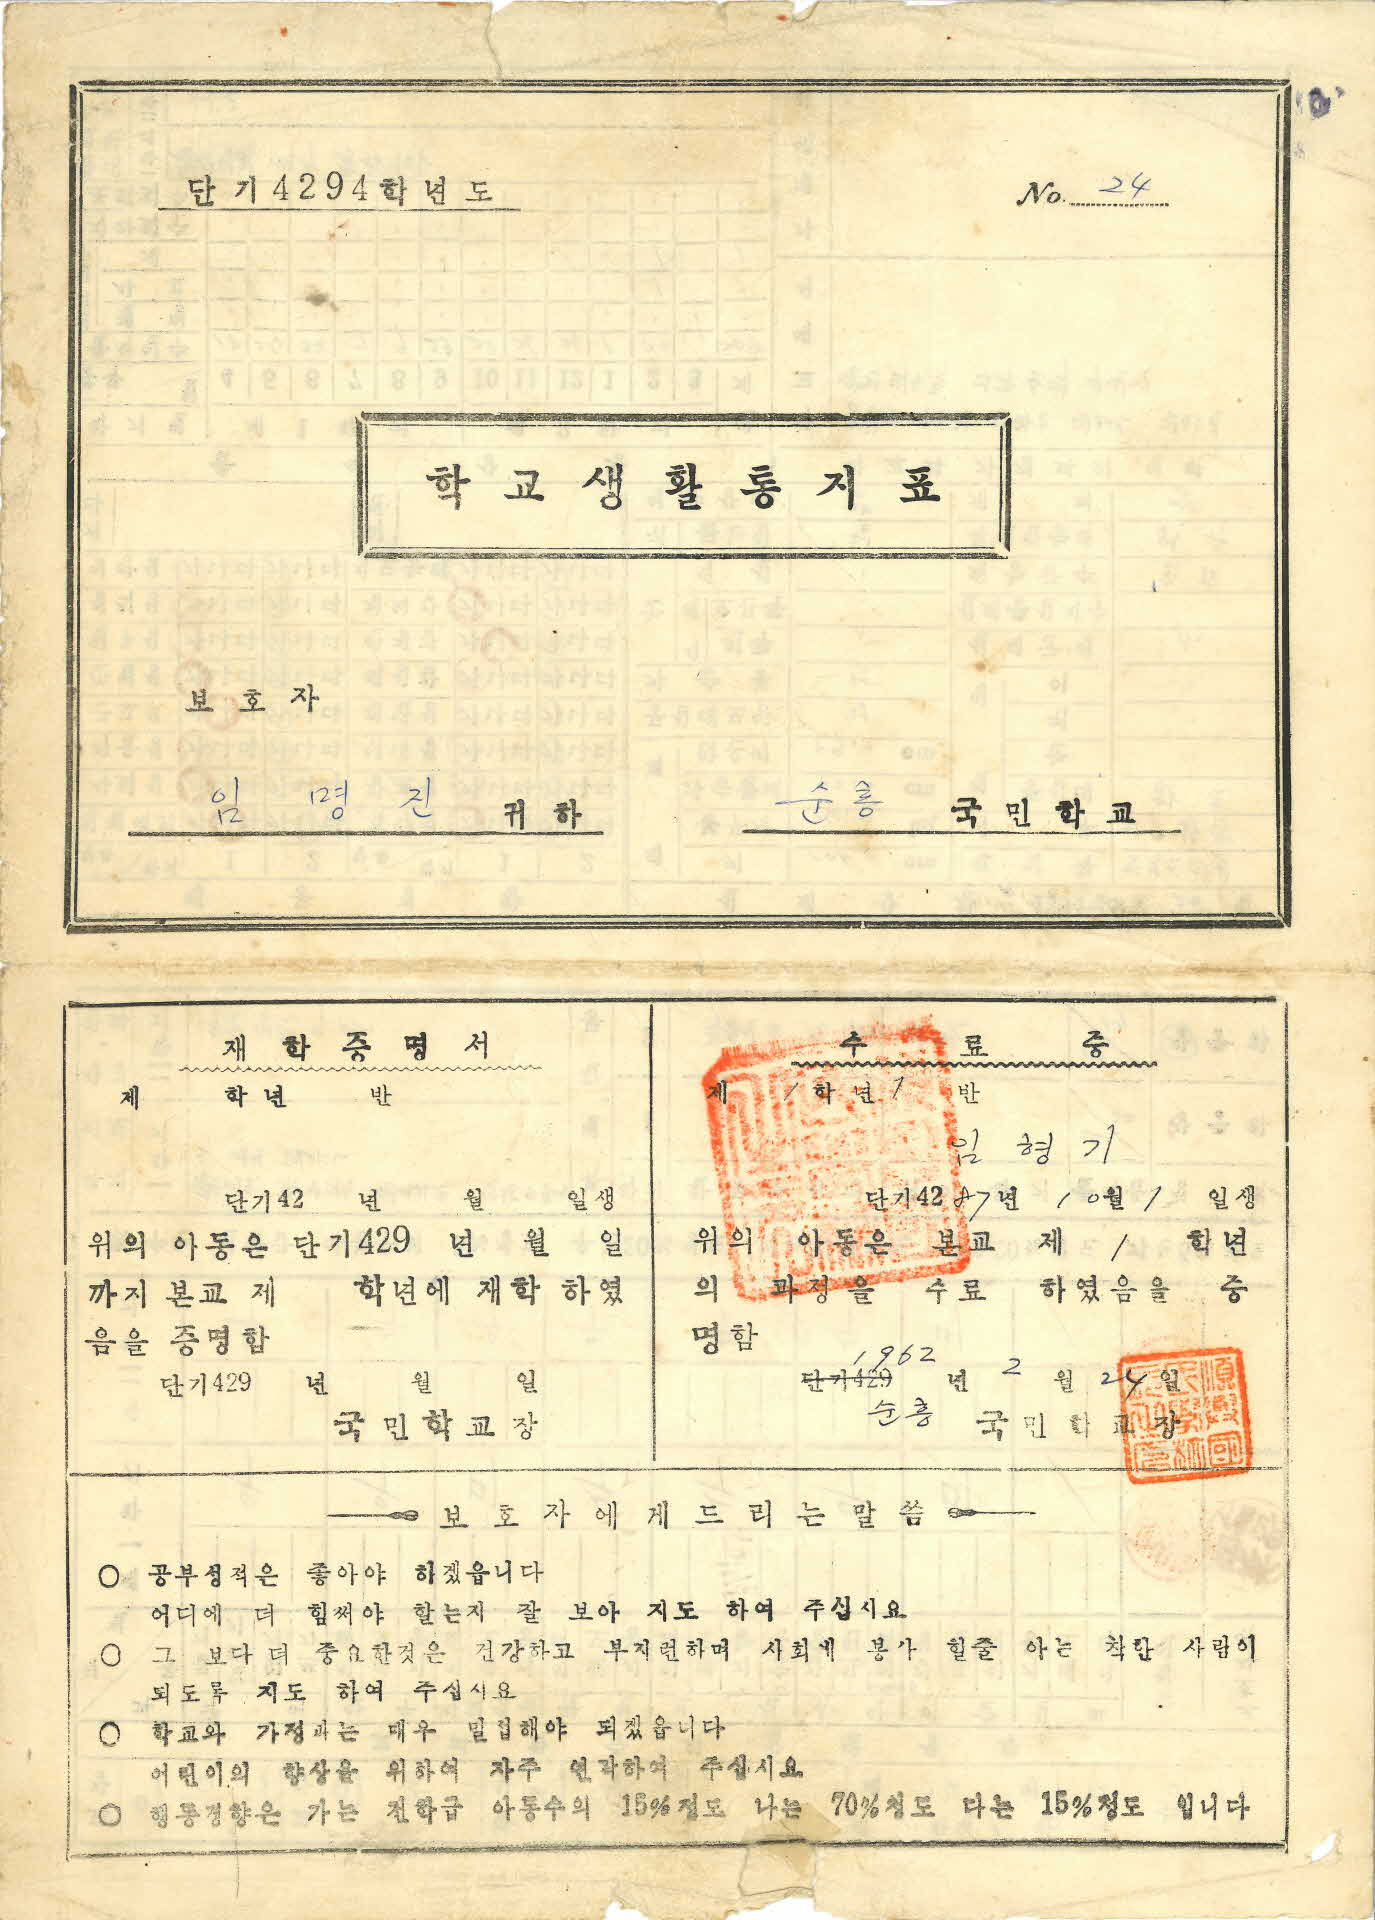 단기4294학년도
No. 24
학교생활통지표
보호자
임명진 귀하
순흥 국민학교
재학증명서
제 학년 반
단기42 년 월 일생
위의 아동은 단기429 년 월 일
까지 본교 제 학년에 재학 하였
음을 증명함
단기429 년 월 일
국민학교장
수료증
제 1 학년 1 반
임형기
단기4287년 10월 1 일생
위의 아동은 본교 제 1 학년
의 과정을 수료 하였음을 증
명함
1962
단기429 년 2 월 24 일
순흥 국민학교장
보호자에게드리는말씀
○ 공부성적은 좋아야 하겠읍니다
어디에 더 힘써야 할는지 잘 보아 지도 하여 주십시요
○ 그 보다 더 중요한것은 건강하고 부지런하며 사회에 봉사 할줄 아는 착한 사람이
되도록 지도 하여 주십시요
○ 학교와 가정과는 매우 밀접해야 되겠읍니다
어린이의 향상을 위하여 자주 연락하여 주십시요
○ 행동경향은 가는 전학급 아동수의 15%정도 나는 70%정도 다는 15%정도 입니다